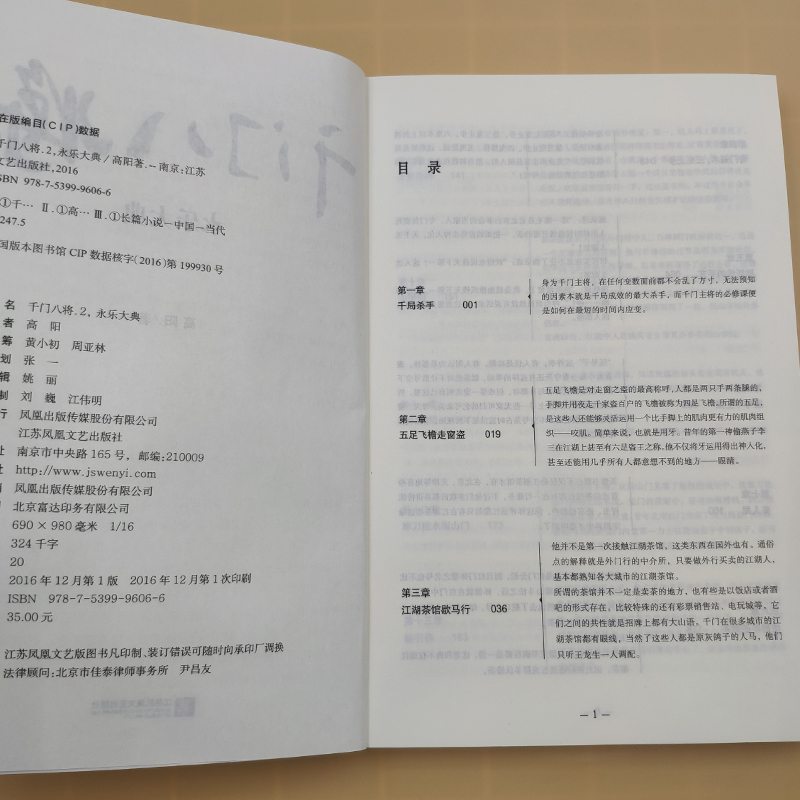 在版编目(CIP)数据
千门八将.2,永乐大典/高阳著.--南京:江苏
文艺出版社,2016
ISBN 978-7-5399-9606-6
①千… Ⅱ.①高… Ⅲ.①长篇小说-中国-当代
247.5
国版本图书馆CIP数据核字(2016)第199930号
名 千门八将.2,永乐大典
者 高 阳
筹 黄小初 周亚林
划 张 一
辑 姚 丽
制 刘 巍 江伟明
行 凤凰出版传媒股份有限公司
江苏凤凰文艺出版社
址 南京市中央路165号,邮编:210009
址 http://www.jswenyi.com
凤凰出版传媒股份有限公司
北京富达印务有限公司
690×980毫米 1/16
324千字
20
2016年12月第1版 2016年12月第1次印刷
ISBN 978-7-5399-9606-6
35.00元
江苏凤凰文艺版图书凡印制、装订错误可随时向承印厂调换
法律顾问:北京市佳泰律师事务所 尹昌友
目 录
第一章
千局杀手 001
身为千门主将,在任何变数面前都不会乱了方寸,无法预知
的因素本就是千局成败的最大杀手,而千门主将的必修课便
是如何在最短的时间内应变。
第二章
五足飞檐走窗盗 019
五足飞檐是对走窗之盗的最高称呼,人都是两只手两条腿的,
手脚并用夜走千家盗百户的飞檐被称为四足飞檐,所谓的五足,
是这些人还能够灵活运用一个比手脚上的肌肉更有力的肌肉组
织——咬肌。简单来说,也就是用牙。昔年的第一神偷燕子李
三在江湖上甚至有六足盗王之称,他不仅将牙运用得出神入化,
甚至还能用几乎所有人都意想不到的地方——眼睛。
第三章
江湖茶馆歇马行 036
他并不是第一次接触江湖茶馆,这类东西在国外也有,通俗
点的解释就是外门行的中介所,只要做外行买卖的江湖人,
基本都熟知各大城市的江湖茶馆。
所谓的茶馆并不一定是卖茶的地方,也有些是以饭店或者酒
吧的形式存在,比较特殊的还有彩票销售站、电玩城等,它
们之间的共性就是招牌上都有大山语,千门在很多城市的江
湖茶馆都有眼线,当然了这些人都是原灰鸽子的人马,他们
只听王龙生一人调配。
— 1 —